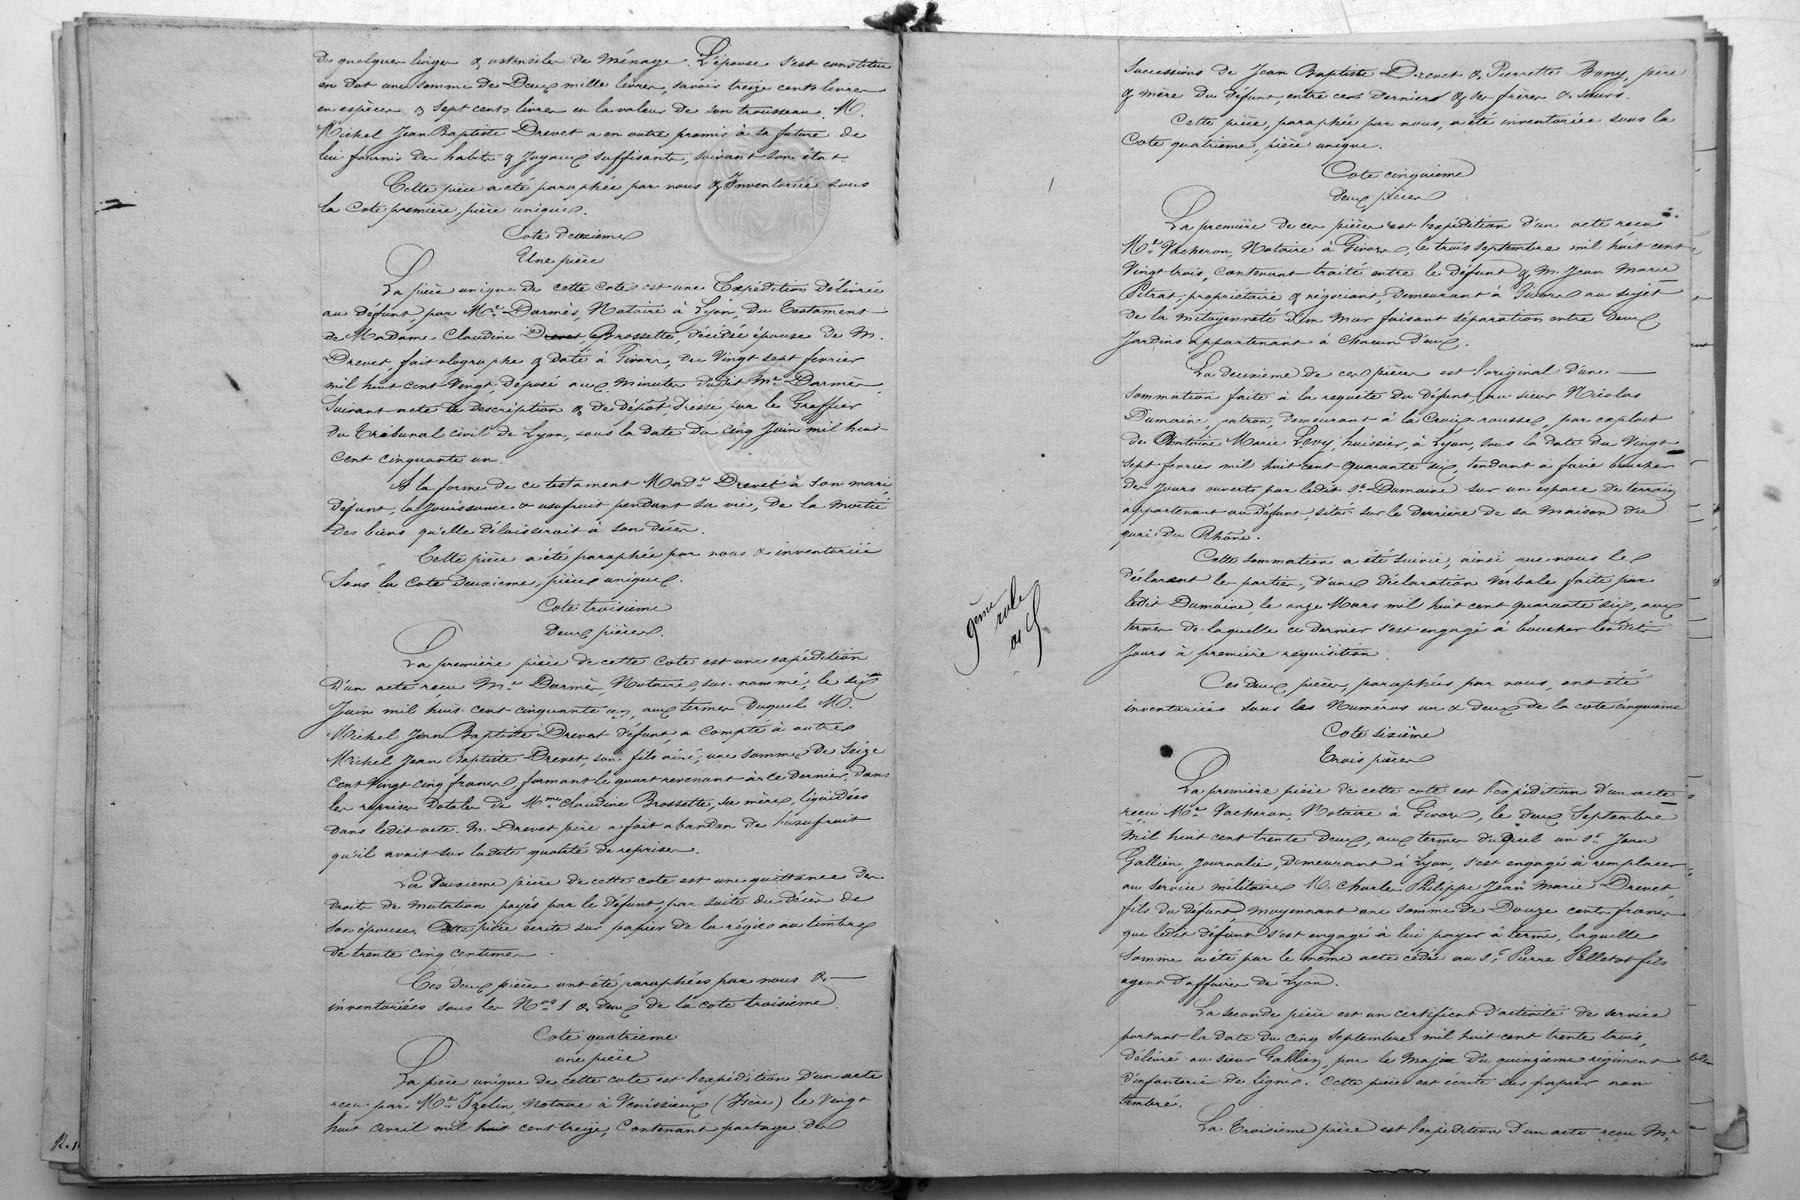 de quelques linges & ustensiles de ménage. L'épouse s'est constituée
en dot une somme de Deux mille livres, savoir treize cents livres
en espèces & sept cents livres en la valeur de son trousseau. M.
Michel Jean Baptiste Drevet a en outre promis à sa future de
lui fournir des habits & Joyaux suffisants, suivant son état.
Cette pièce a été paraphée par nous & Inventoriée sous
la Cote première, pièce unique.
Cote deuxième
Une pièce
La pièce unique de cette Cote est une Expédition délivrée
au défunt, par Me Darmès, Notaire à Lyon, du Testament
de Madame Claudine Drevet Brossette, décédée épouse de M.
Drevet, fait olographe & daté à Givors, du Vingt sept février
mil huit cent Vingt, déposé aux minutes dudit Me Darmès,
Suivant acte de description & de dépôt, dressé par le Greffier
du Tribunal civil de Lyon, sous la date du cinq Juin mil huit
cent cinquante un.
A la forme de ce testament Made Drevet à son mari
défunt, la Jouissance & usufruit pendant sa vie, de la moitié
des biens qu'elle délaisserait à son décès.
Cette pièce a été paraphée par nous & inventoriée
Sous la Cote deuxième, pièce unique.
Cote troisième
Deux pièces.
La première pièce de cette cote est une expédition
d'un acte reçu Me Darmès, Notaire, sus-nommé, le six
Juin mil huit cent cinquante un, aux termes duquel M.
Michel Jean Baptiste Drevet défunt, a compté à autre
Michel Jean Baptiste Drevet, son fils aîné, une somme de Seize
Cent Vingt cinq francs formant le quart revenant à ce dernier, dans
les reprises dotales de Mme Claudine Brossette, sa mère, liquidées
dans ledit acte. M. Drevet père a fait abandon de l'usufruit
qu'il avait sur ladite quotité de reprises.
La deuxième pièce de cette cote est une quittance des
droits de mutation payés par le défunt, par suite du décès de
son épouse. Cette pièce écrite sur papier de la régie au timbre
de trente cinq centimes.
Ces deux pièces ont été paraphées par nous &
inventoriées sous les Nos 1 & deux de la cote troisième
Cote quatrième
une pièce
La pièce unique de cette cote est l'expédition d'un acte
reçu par Me Izelin, Notaire à Venissieux (Isère) le Vingt
huit Avril mil huit cent treize, Contenant partage des
9ème
rôle
Successions de Jean Baptiste Drevet & Pierrette Bony, père
& mère du défunt, entre ces derniers & ses frères & sœurs.
Cette pièce, paraphée par nous, a été inventoriée sous la
Cote quatrième, pièce unique.
Cote cinquième
Deux pièces
La première de ces pièces est l'expédition d'un acte reçu
Me Vacheron, Notaire à Givors, le trois septembre mil huit cent
Vingt trois, contenant traité entre le défunt & M. Jean Marie
Pitrat, propriétaire & négociant, demeurant à Givors au sujet
de la mitoyenneté d'un mur faisant séparation entre deux
Jardins appartenant à chacun d'eux.
La deuxième de ces pièces est l'original d'une
sommation faite à la requête du défunt au sieur Nicolas
Dumaine, patron, demeurant à la Croix-rousse, par exploit
de Antoine Marie Levy, huissier, à Lyon, sous la date du Vingt
sept février mil huit cent quarante six, tendant à faire boucher
des Jours ouverts par ledit Sr Dumaine sur un espace de terrain
appartenant au défunt, situé sur le derrière de sa maison du
quai du Rhône.
Cette sommation a été suivie, ainsi que nous le
déclarent les parties, d'une déclaration verbale faite par
ledit Dumaine, le onze Mars mil huit cent quarante six, aux
termes de laquelle ce dernier s'est engagé à boucher lesdits
Jours à première réquisition.
Ces deux pièces, paraphées par nous, ont été
inventoriées sous les Numéros un & deux de la cote cinquième
Cote sixième
Trois pièces
La première pièce de cette cote est l'expédition d'un acte
reçu Me Vacheron, Notaire à Givors, le deux Septembre
mil huit cent trente deux, aux termes duquel un Sr Jean
Gallien, journalier, demeurant à Lyon, s'est engagé à remplacer
au service militaire M. Charles Philippe Jean Marie Drevet
fils du défunt moyennant une somme de Douze cents francs
que ledit défunt s'est engagé à lui payer à terme, laquelle
somme a été par le même acte cédée au Sr Pierre Pelletot fils
agent d'affaires de Lyon.
La seconde pièce est un certificat d'activité de service
portant la date du cinq Septembre mil huit cent trente trois,
délivré au sieur Gallien, par le Major du quinzième régiment
d'infanterie de ligne. Cette pièce est écrite sur papier non
timbré.
La Troisième pièce est l'expédition d'un acte reçu Me